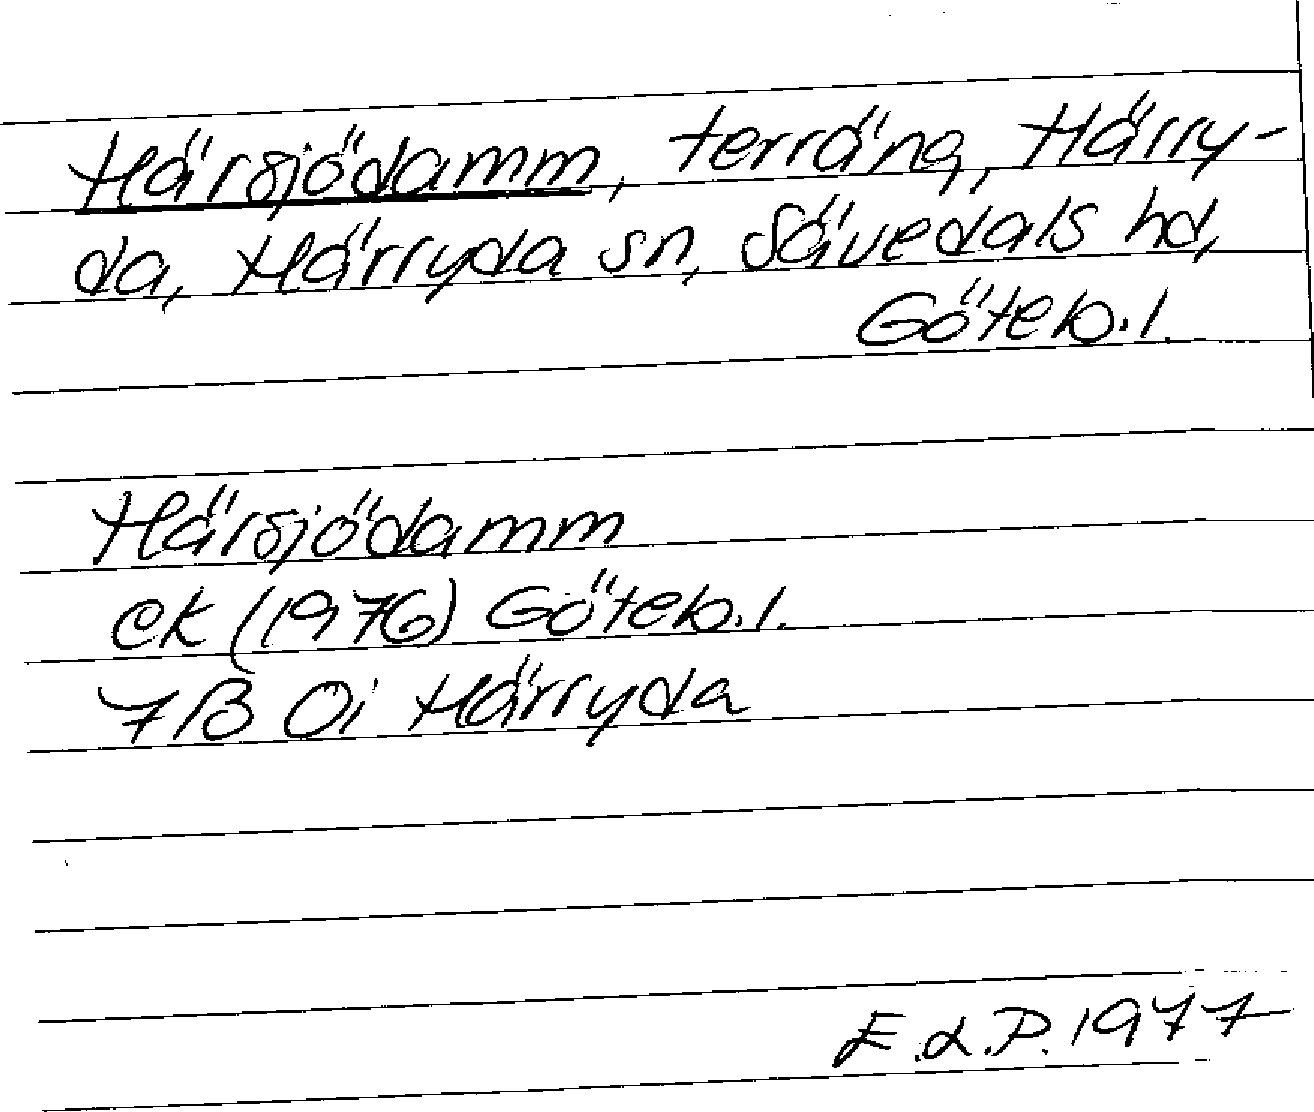 Härsjödamm, terräng, Härry-
da, Härryda sn, Sävedals hd,
Göteb. l.
Härsjödamm
ek (1976) Göteb. l.
7B 0i Härryda
E.d.P. 1977